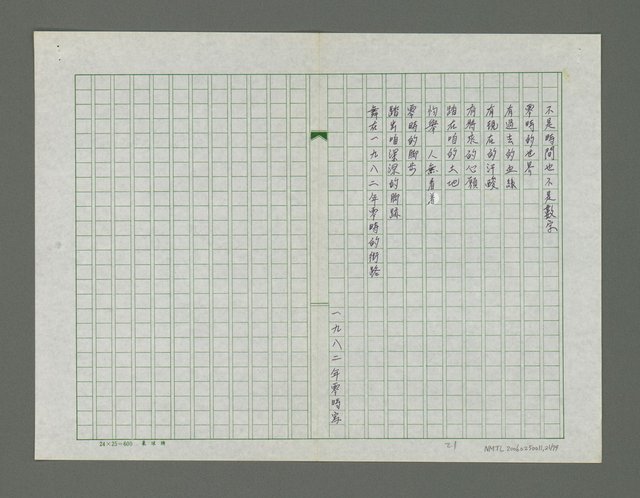 不是時間也不是數字
零時的世界
有過去的血跡
有現在的汗酸
有將來的心願
踏在咱的土地
恬靜 人無看著
零時的腳步
踏出咱深深的腳跡
舞在一九八二年零時的街路
一九八二年零時寫
24×25=600
21